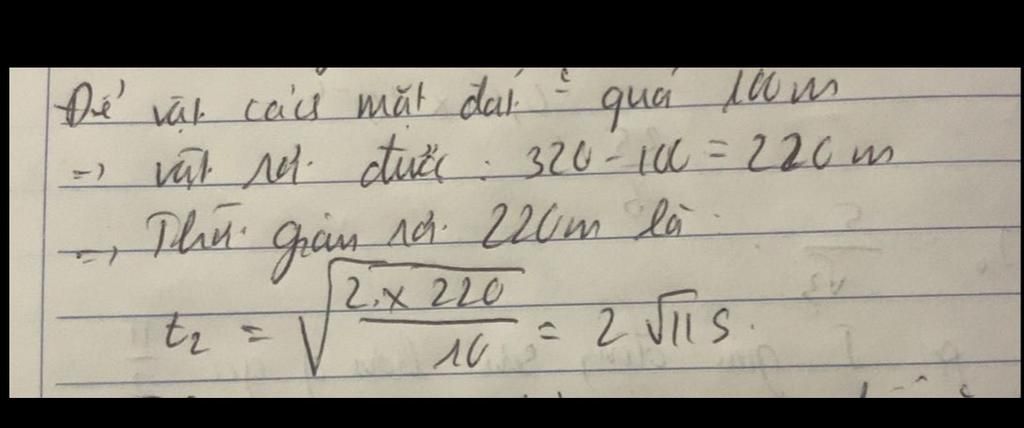 Để vật cách mặt đất quá 100m
=> vật rơi được : 320 - 100 = 220 m
=> Thời gian rơi 220m là
t₂ = √(2 × 220 / 10) = 2√11 s.